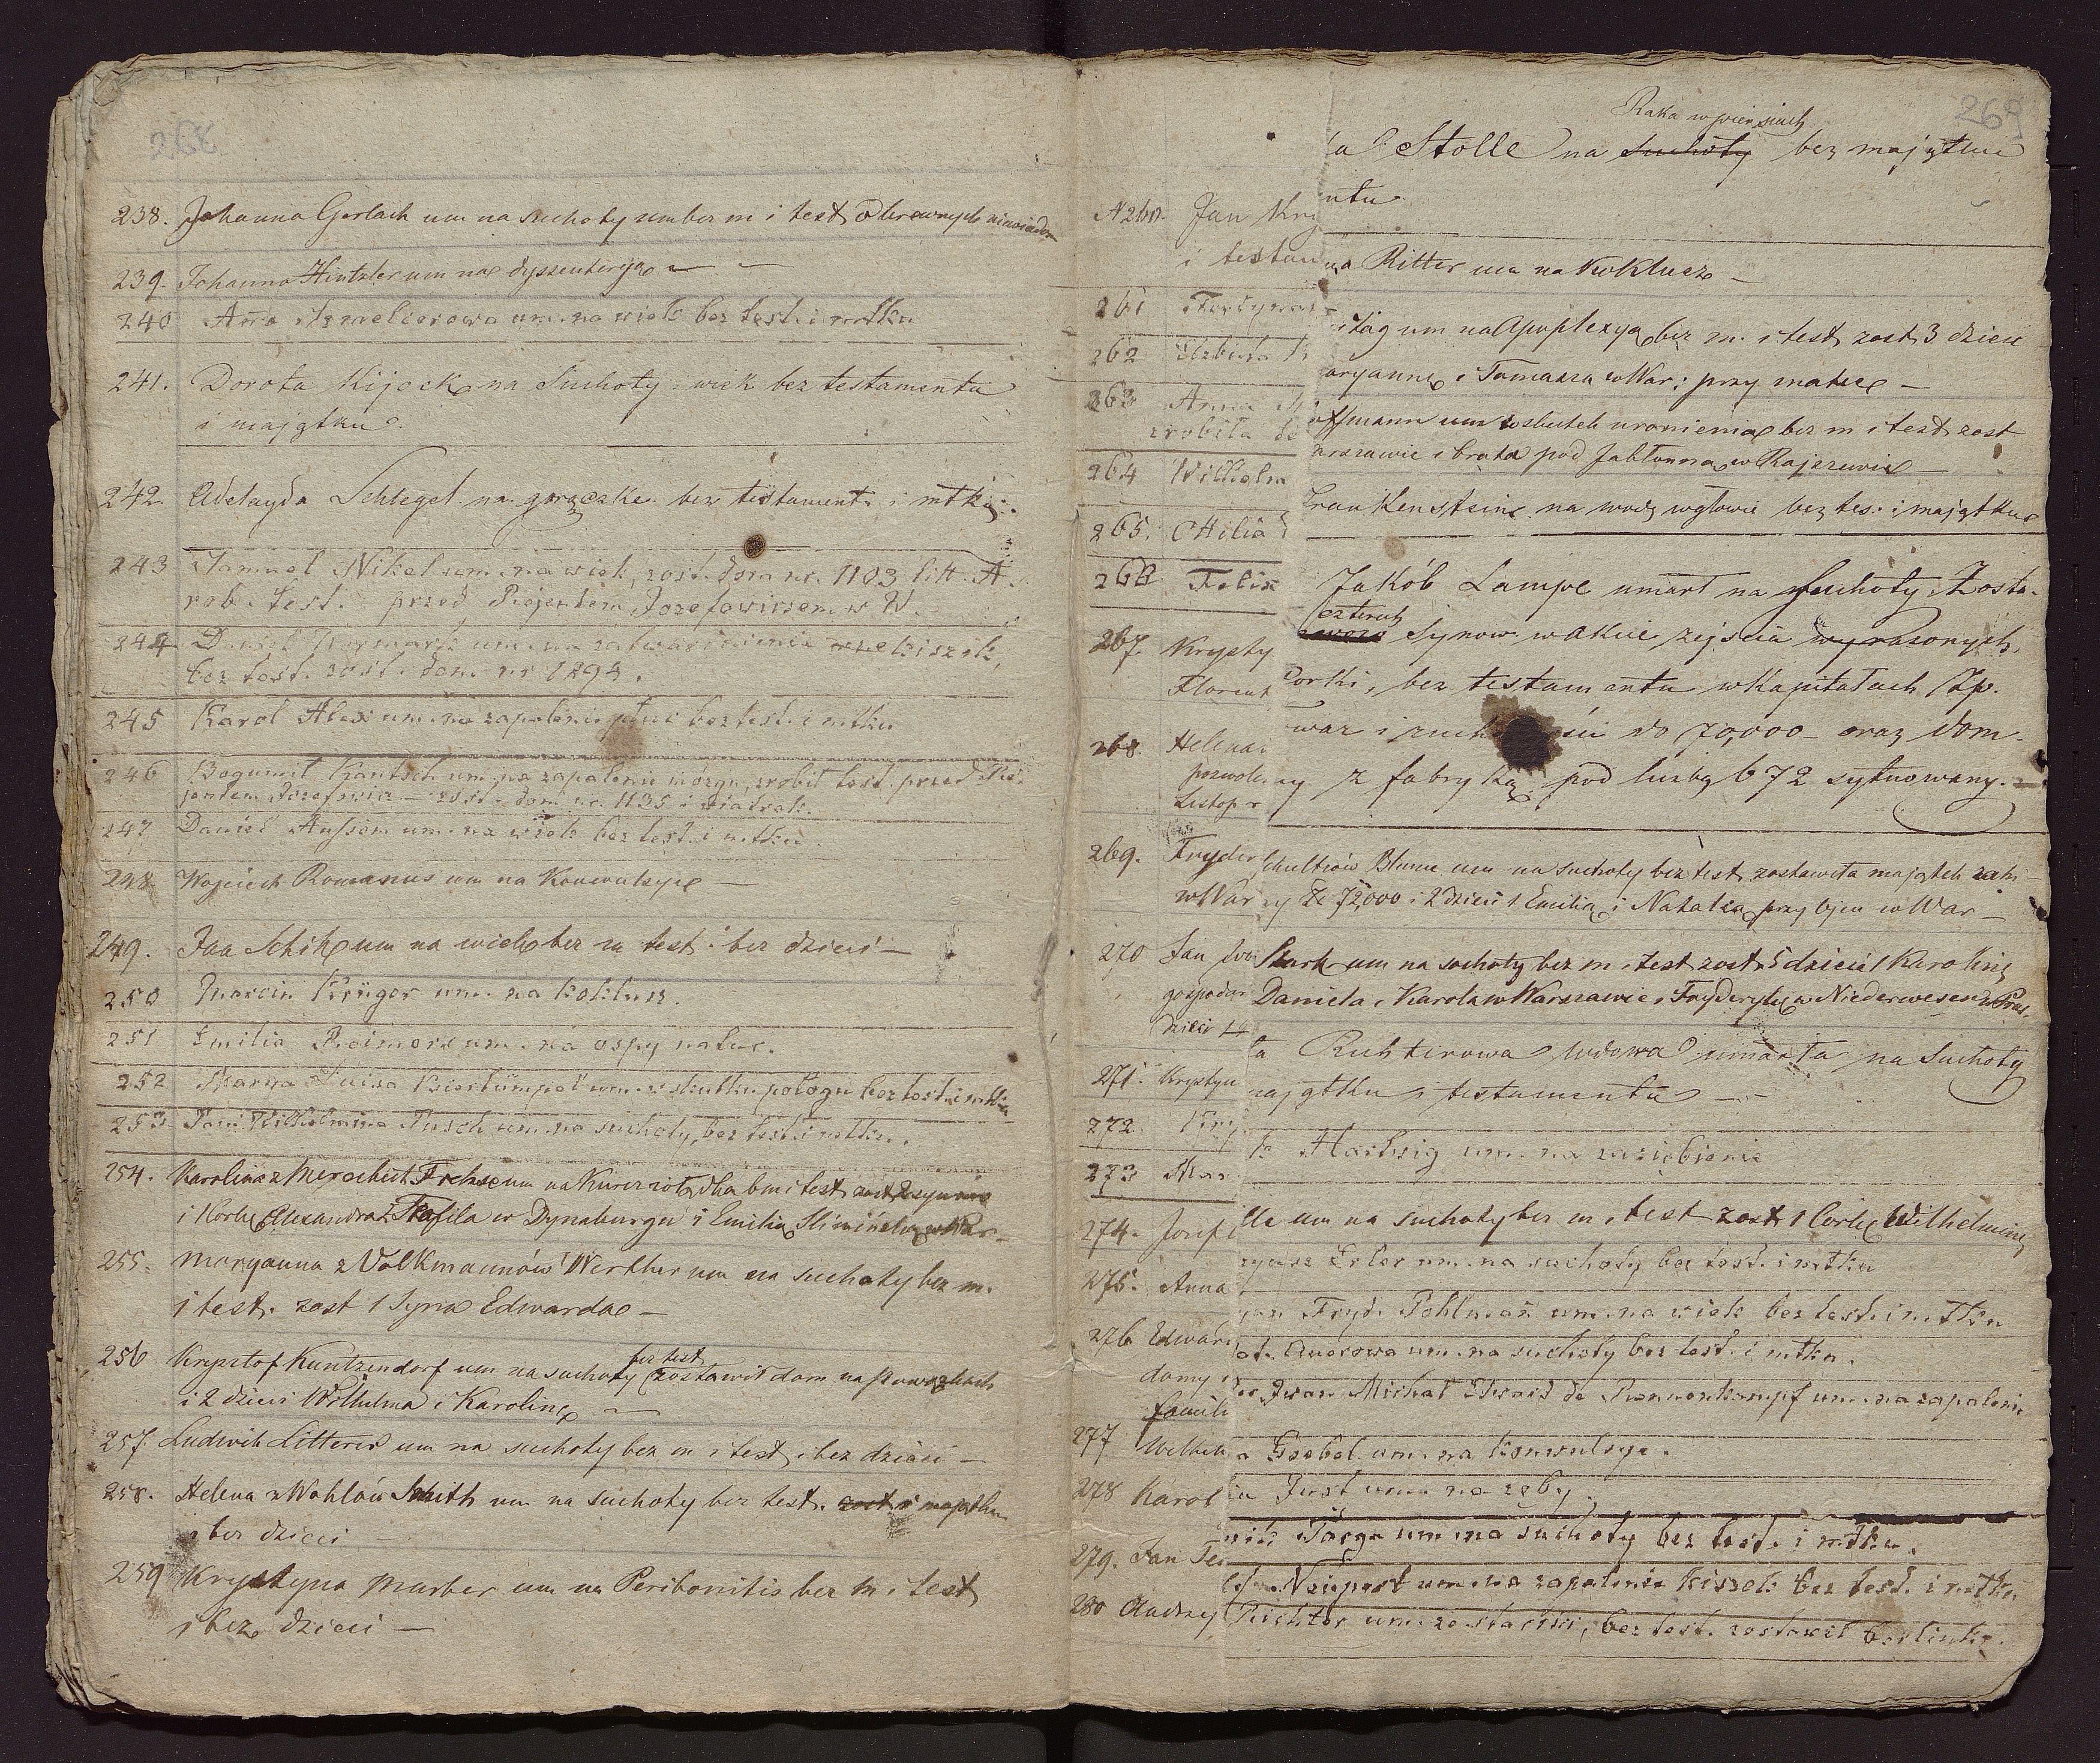 268
238. Johanna Gerlach um na suchoty um bez m i test o krewnych niewiadom
239. Johanna Hintzler um na dyssenteryą
240 Anna um. na wiek bez test. i mtku
241. Dorota Kijock na Suchoty i wiek bez testamentu
i majątku
242. Adelayda Schlegel na gorączke bez testamentu i mtku.
243 Samuel Nikel um. na wiek, zost. dom nr. 1103 litt. A.
rob. test. przed Rejentem Jozefowiczem w W.
244 Daniel um. na zatwardzenie kiszek,
bez test. zost. dom nr 1294.
245 Karol Alex um. na zapalenie płuc bez test. i mtku
246 Bogumił Kantsch um. na zapalenie mózgu, zrobił test. przed Re-
jentem Jozefowicz — zost. dom nr. 1135 i wiatrak.
247 Daniel um. na wiek bez test. i mtku.
248. Wojciech Romanus um na Konwulsye —
249. Jan Schik um na wiek bez m test i bez dzieci —
250 Marcin Krüger um. na koklusz.
251 Emilia um. na ospy natur.
252 Maryа Luiza um. w skutku połogu bez test. i mtku
253. Wilhelmina Pusch um. na suchoty, bez test. i mtku.
254. Karolina z um na bez m i test zost 2 synów
i 1 Corke Alexandra i Teofila w Dynaburgu i Emilią w War—
255. Maryanna z Volkmannów Werther um na suchoty bez m.
i test. zost 1 Syna Edwarda —
256 Krysztof Kuntzendorf um na suchoty bez test zostawił dom na Powązkach
i 2 dzieci Wilhelma i Karoline —
257. Ludwik Litterer um na suchoty bez m i test i bez dzieci —
258. Helena z Wahlów Smith um na Suchoty bez test. zost i majątku
i bez dzieci
259 Krystyna Marber um na Peritonitis bez m i test
i bez dzieci —
269
Raka w piersiach
Stolle na suchoty bez majątku
ntu
N 260. Jan
i testam
na Ritter um na Koklusz —
261
um na Apoplexyą bez m. i test zost 3 dzieci
262
aryannę i Tomasza w War: przy matce —
263 Anna
offmann um w skutek uronienia bez m i test zost
zrobiła te
arszawie i brata pod Jabłonną w Rajszewie —
264 Wilhelm
Frankenstein na wodę w głowie bez tes: i majątku
265. Ottilia
266 Felix
Jakób Lampe umarł na Suchoty, Zosta-
czterech
267. Krysty
Synow w akcie zejścia wyrażonych
Florent
Corki, bez testamentu w Kapitałach Zp.
do 70,000 oraz dom
268. Helena
pozwole
y z fabryką pod liczbą 672 sytuowany.
Listop
269. Fryder
Schultzów Blume um na suchoty bez test zostawiła majątek
w War
Zł 72,000 i 2 dzieci 1 Emilią i Natalia przy ojcu w War —
270 Jan
Stark um na suchoty bez m i test zost 5 dzieci 1 Karolinę
gospodar
Daniela i Karola w Warszawie i Fryderykę w Niederwesen w Prus.
dzieci
ta Richterowa wdowa umarła na Suchoty
271. Krystyn
majątku i testamentu —
272. Kry
Harhsig um. na zaziębienie
273 Mar
274. Josef
lle um na suchoty bez m i test zost 1 Corke Wilhelminę
Erler um. na suchoty bez test. i mtku
275. Anna
Fryd. Pohlman um. na wiek bez test. i mtku
276 Edward
Auerowa um. na suchoty bez test. i mtku.
domy
Iwan Michał de Rennenkampf um. na zapalenie
famili
277 Wilhel
a Goebel um. na Konwulsye.
278 Karol
Just um. na zęby.
um. na suchoty bez test. i mtku.
279. Jan
um. na zapalenie kiszek bez test. i mtku
280 Andrzy
Richter um. ze starości, bez test. zostawił berlinkę.